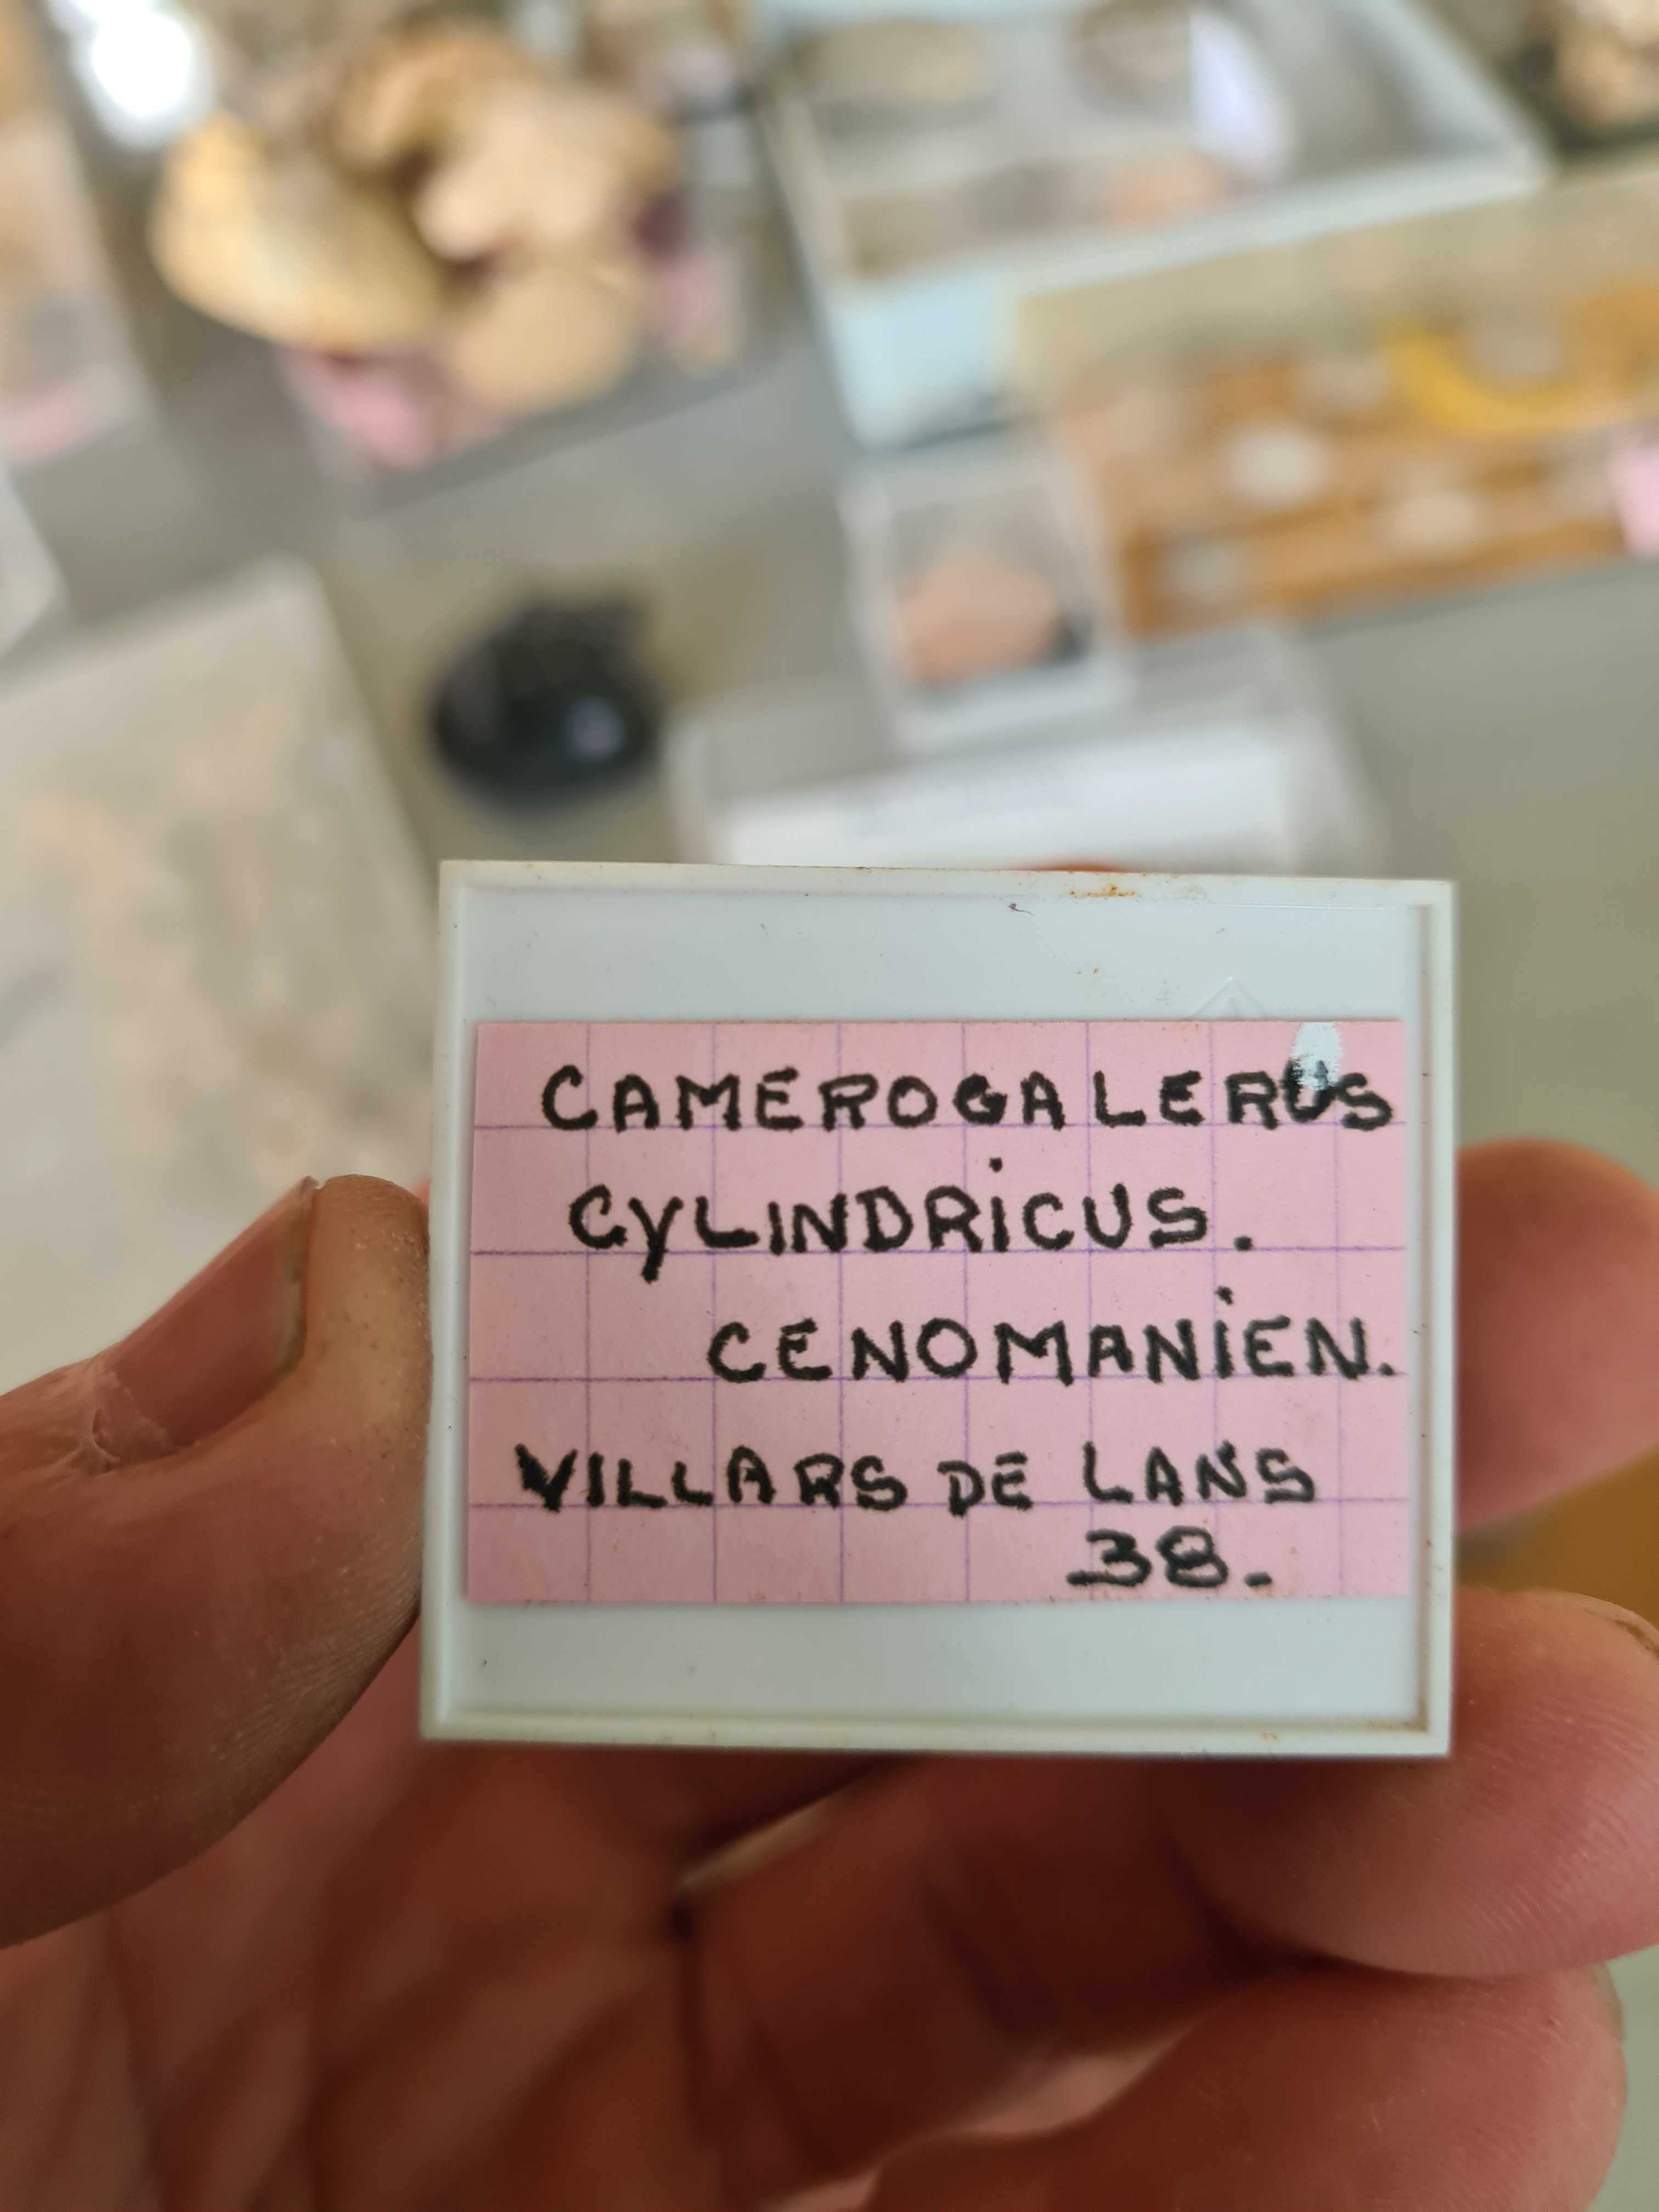 CAMEROGALERUS
CYLINDRICUS.
CENOMANIEN.
VILLARS DE LANS
38.